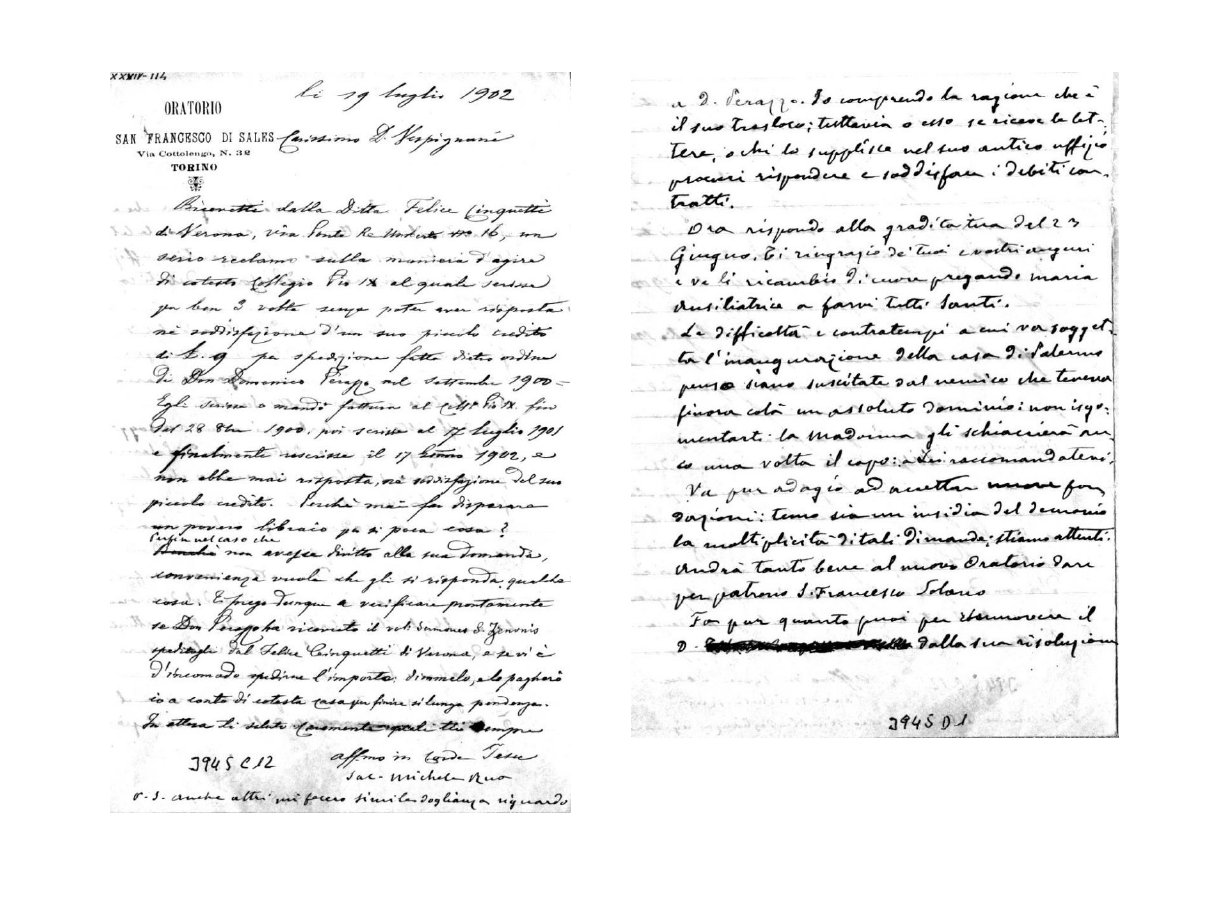 XXVIV-114
li 19 luglio 1902
ORATORIO
SAN FRANCESCO DI SALES
Via Cottolengo, N. 32
TORINO
Carissimo D. Vespignani
Ricevetti dalla Ditta Felice Cinquetti
di Verona, via Ponte Re Umberto No 16, un
serio reclamo sulla maniera d'agire
di cotesto Collegio Pio IX al quale scrisse
per ben 3 volte senza poter aver risposta
nè soddisfazione d'un suo piccolo credito
di L. 9 per spedizione fatta dietro ordine
di Don Domenico Perazzo nel Settembre 1900 =
Egli scrisse o mandò fattura al Coll° Pio IX fin
dal 28 1900. poi scrisse al 17 luglio 1901
e finalmente riscrisse il 17 1902, e
non ebbe mai risposta, nè soddisfazione del suo
piccolo credito. Perchè mai far disperare
un povero libraio per sì poca cosa?
Perfin nel caso che
non avesse diritto alla sua domanda,
convenienza vuole che gli si risponda qualche
cosa. Ti prego dunque a verificare prontamente
se Don Perazzo ha ricevuto il vol: Sermones S. Zenonis
speditogli dal Felice Cinquetti di Verona, e se vi è
d'incomodo spedirne l'importo: dimmelo, e lo pagherò
io a conto di cotesta casa per finire sì lunga pendenza.
In attesa ti saluto caramente sempre
affmo in Corde Jesu
Sac. Michele Rua
3945 C 12
P. S. anche altri mi fecero simile doglianza riguardo
a D. Perazzo. Io comprendo la ragione che è
il suo trasloco; tuttavia o esso se riceve le let-
tere, o chi lo supplisce nel suo antico uffizio
procuri rispondere e soddisfare i debiti con-
tratti.
Ora rispondo alla gradita tua del 23
Giugno. Ti ringrazio de' tuoi e vostri auguri
e ve li ricambio di cuore pregando Maria
Ausiliatrice a farvi tutti santi.
Le difficoltà e contratempi a cui va sogget-
ta l'inaugurazione della casa di Palermo
penso siano suscitate dal nemico che teneva
finora colà un assoluto dominio: non isgo-
mentarti: la Madonna gli schiaccierà an-
co una volta il capo: a Lei raccomandatevi.
Va pur adagio ad accettar nuove fon
dazioni: temo sia un insidia del demonio
la moltiplicità di tali dimande; stiamo attenti.
Andrà tanto bene al nuovo Oratorio dare
per patrono S. Francesco Solano
Fa pur quanto puoi per rimuovere il
D. dalla sua risoluzione
3945 D 1